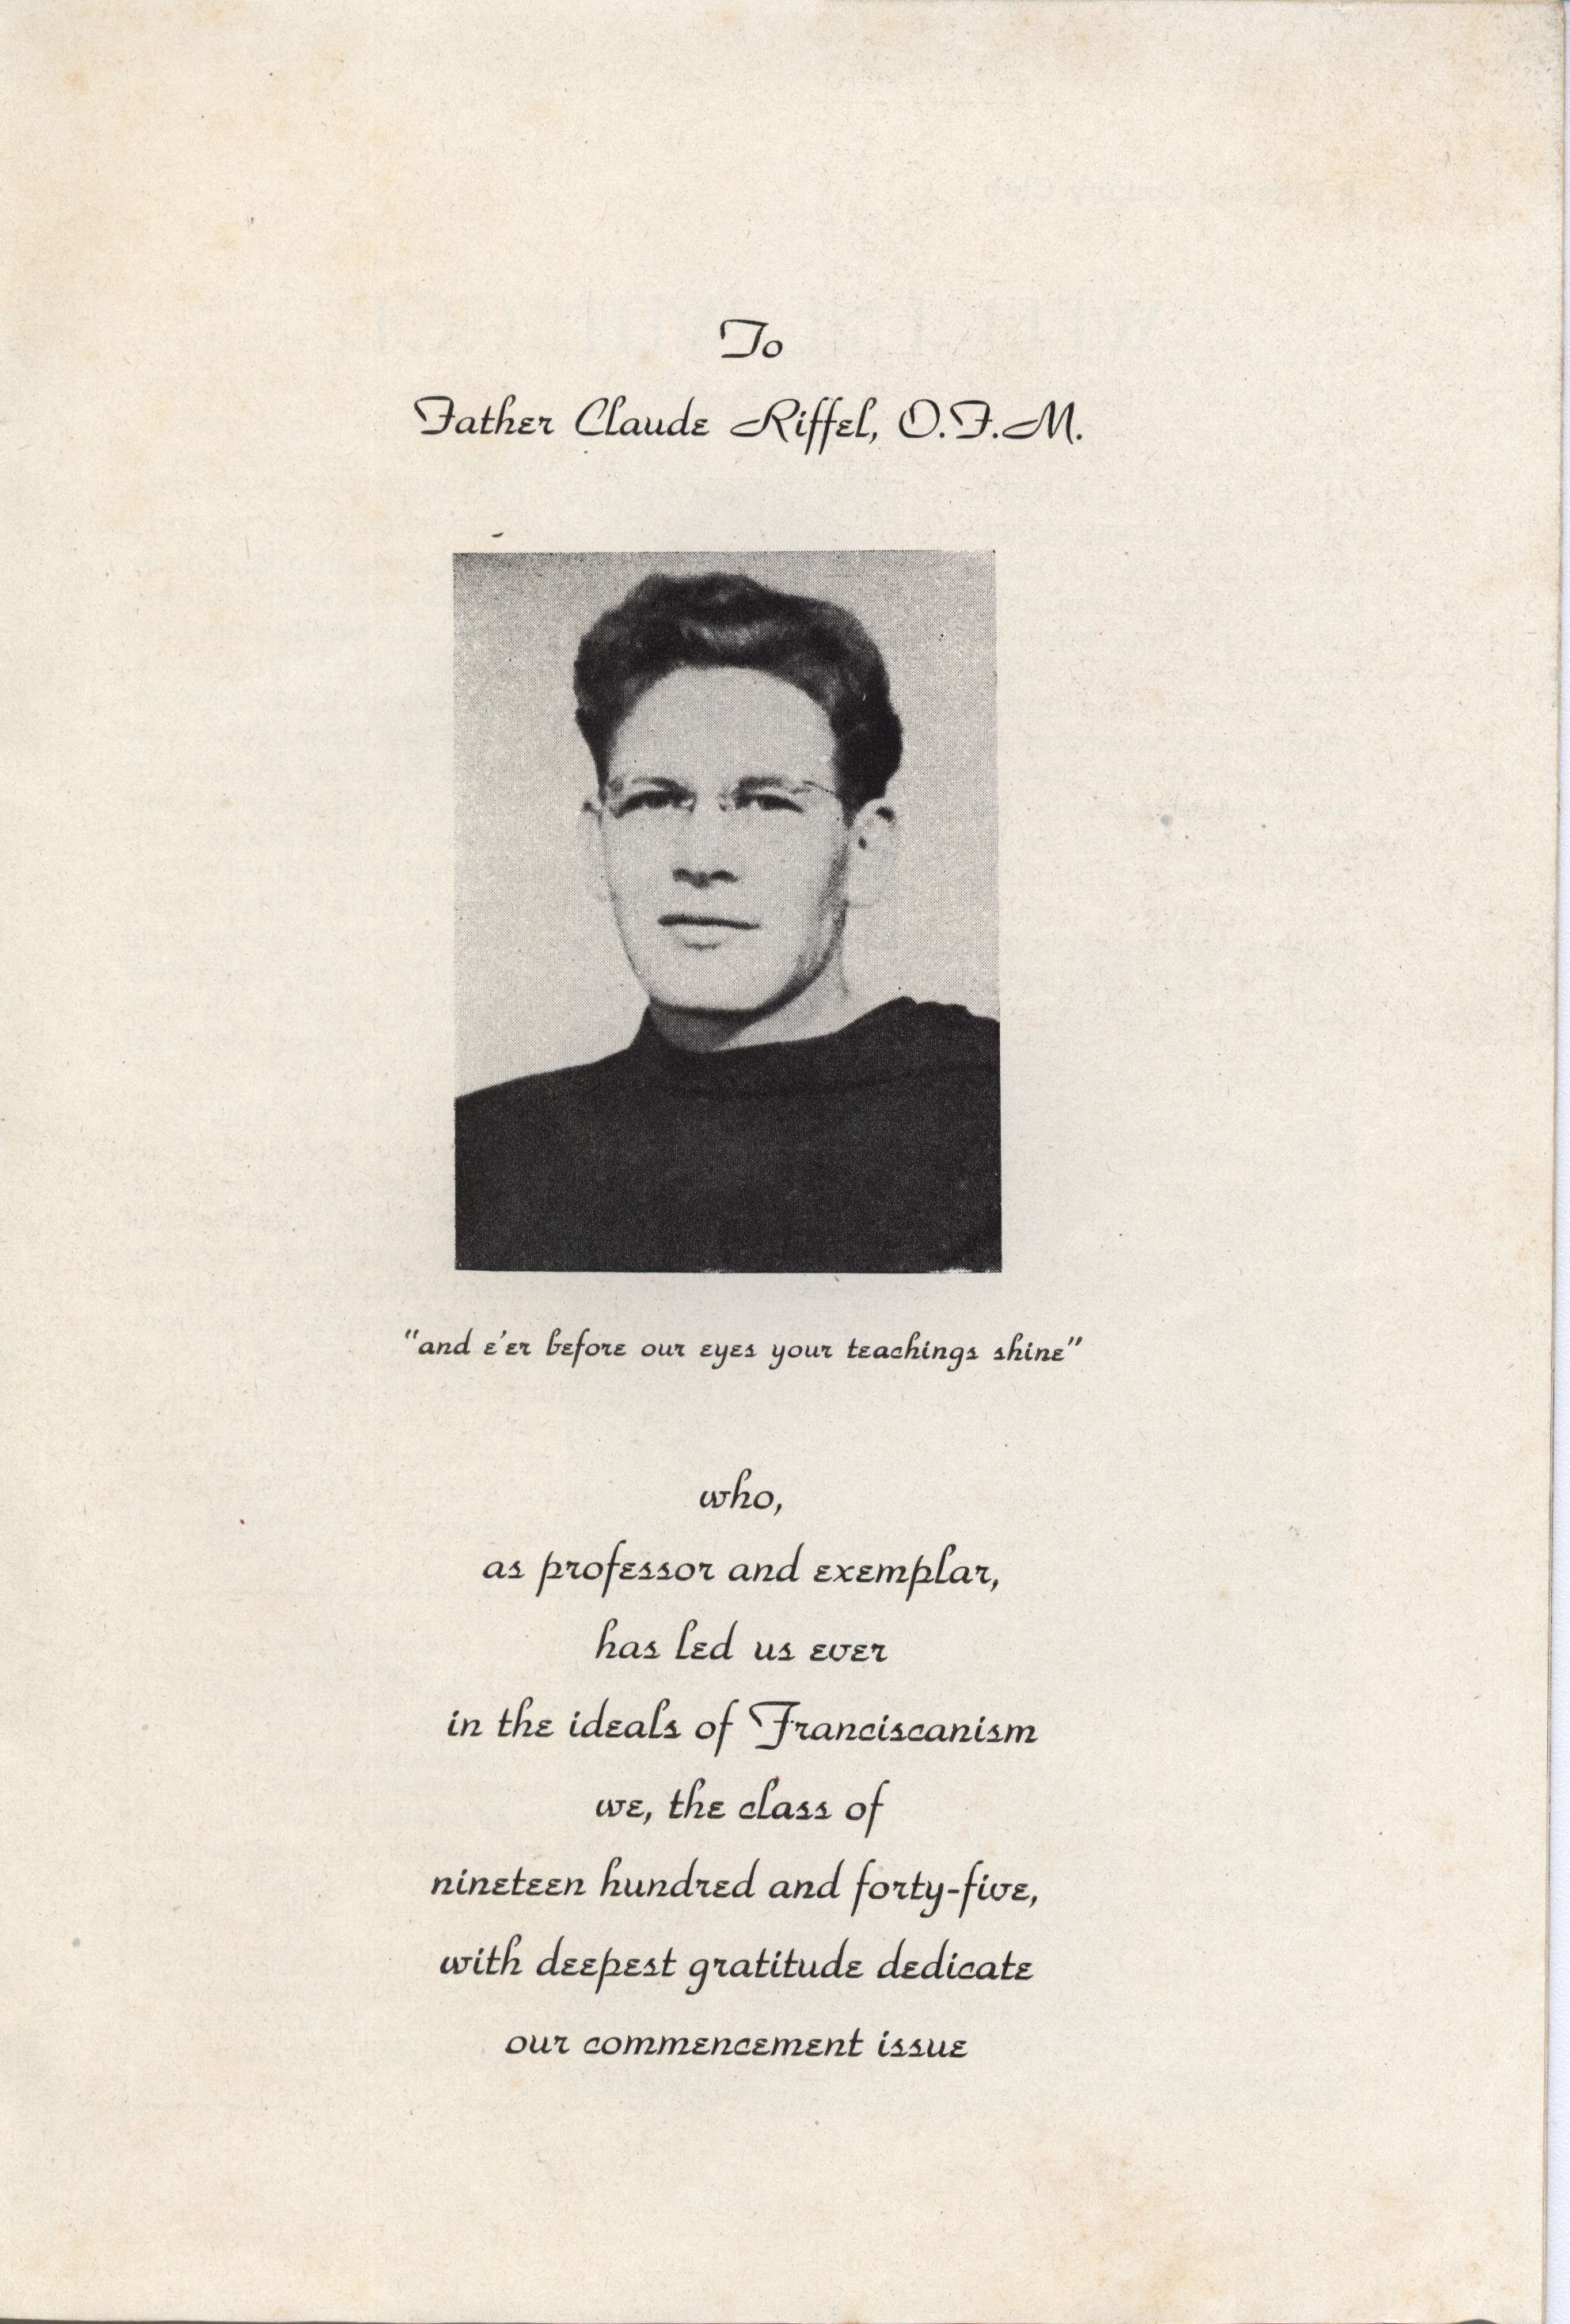 To
Father Claude Riffel, O.F.M.
"and e'er before our eyes your teachings shine"
who,
as professor and exemplar,
has led us ever
in the ideals of Franciscanism
we, the class of
nineteen hundred and forty-five,
with deepest gratitude dedicate
our commencement issue